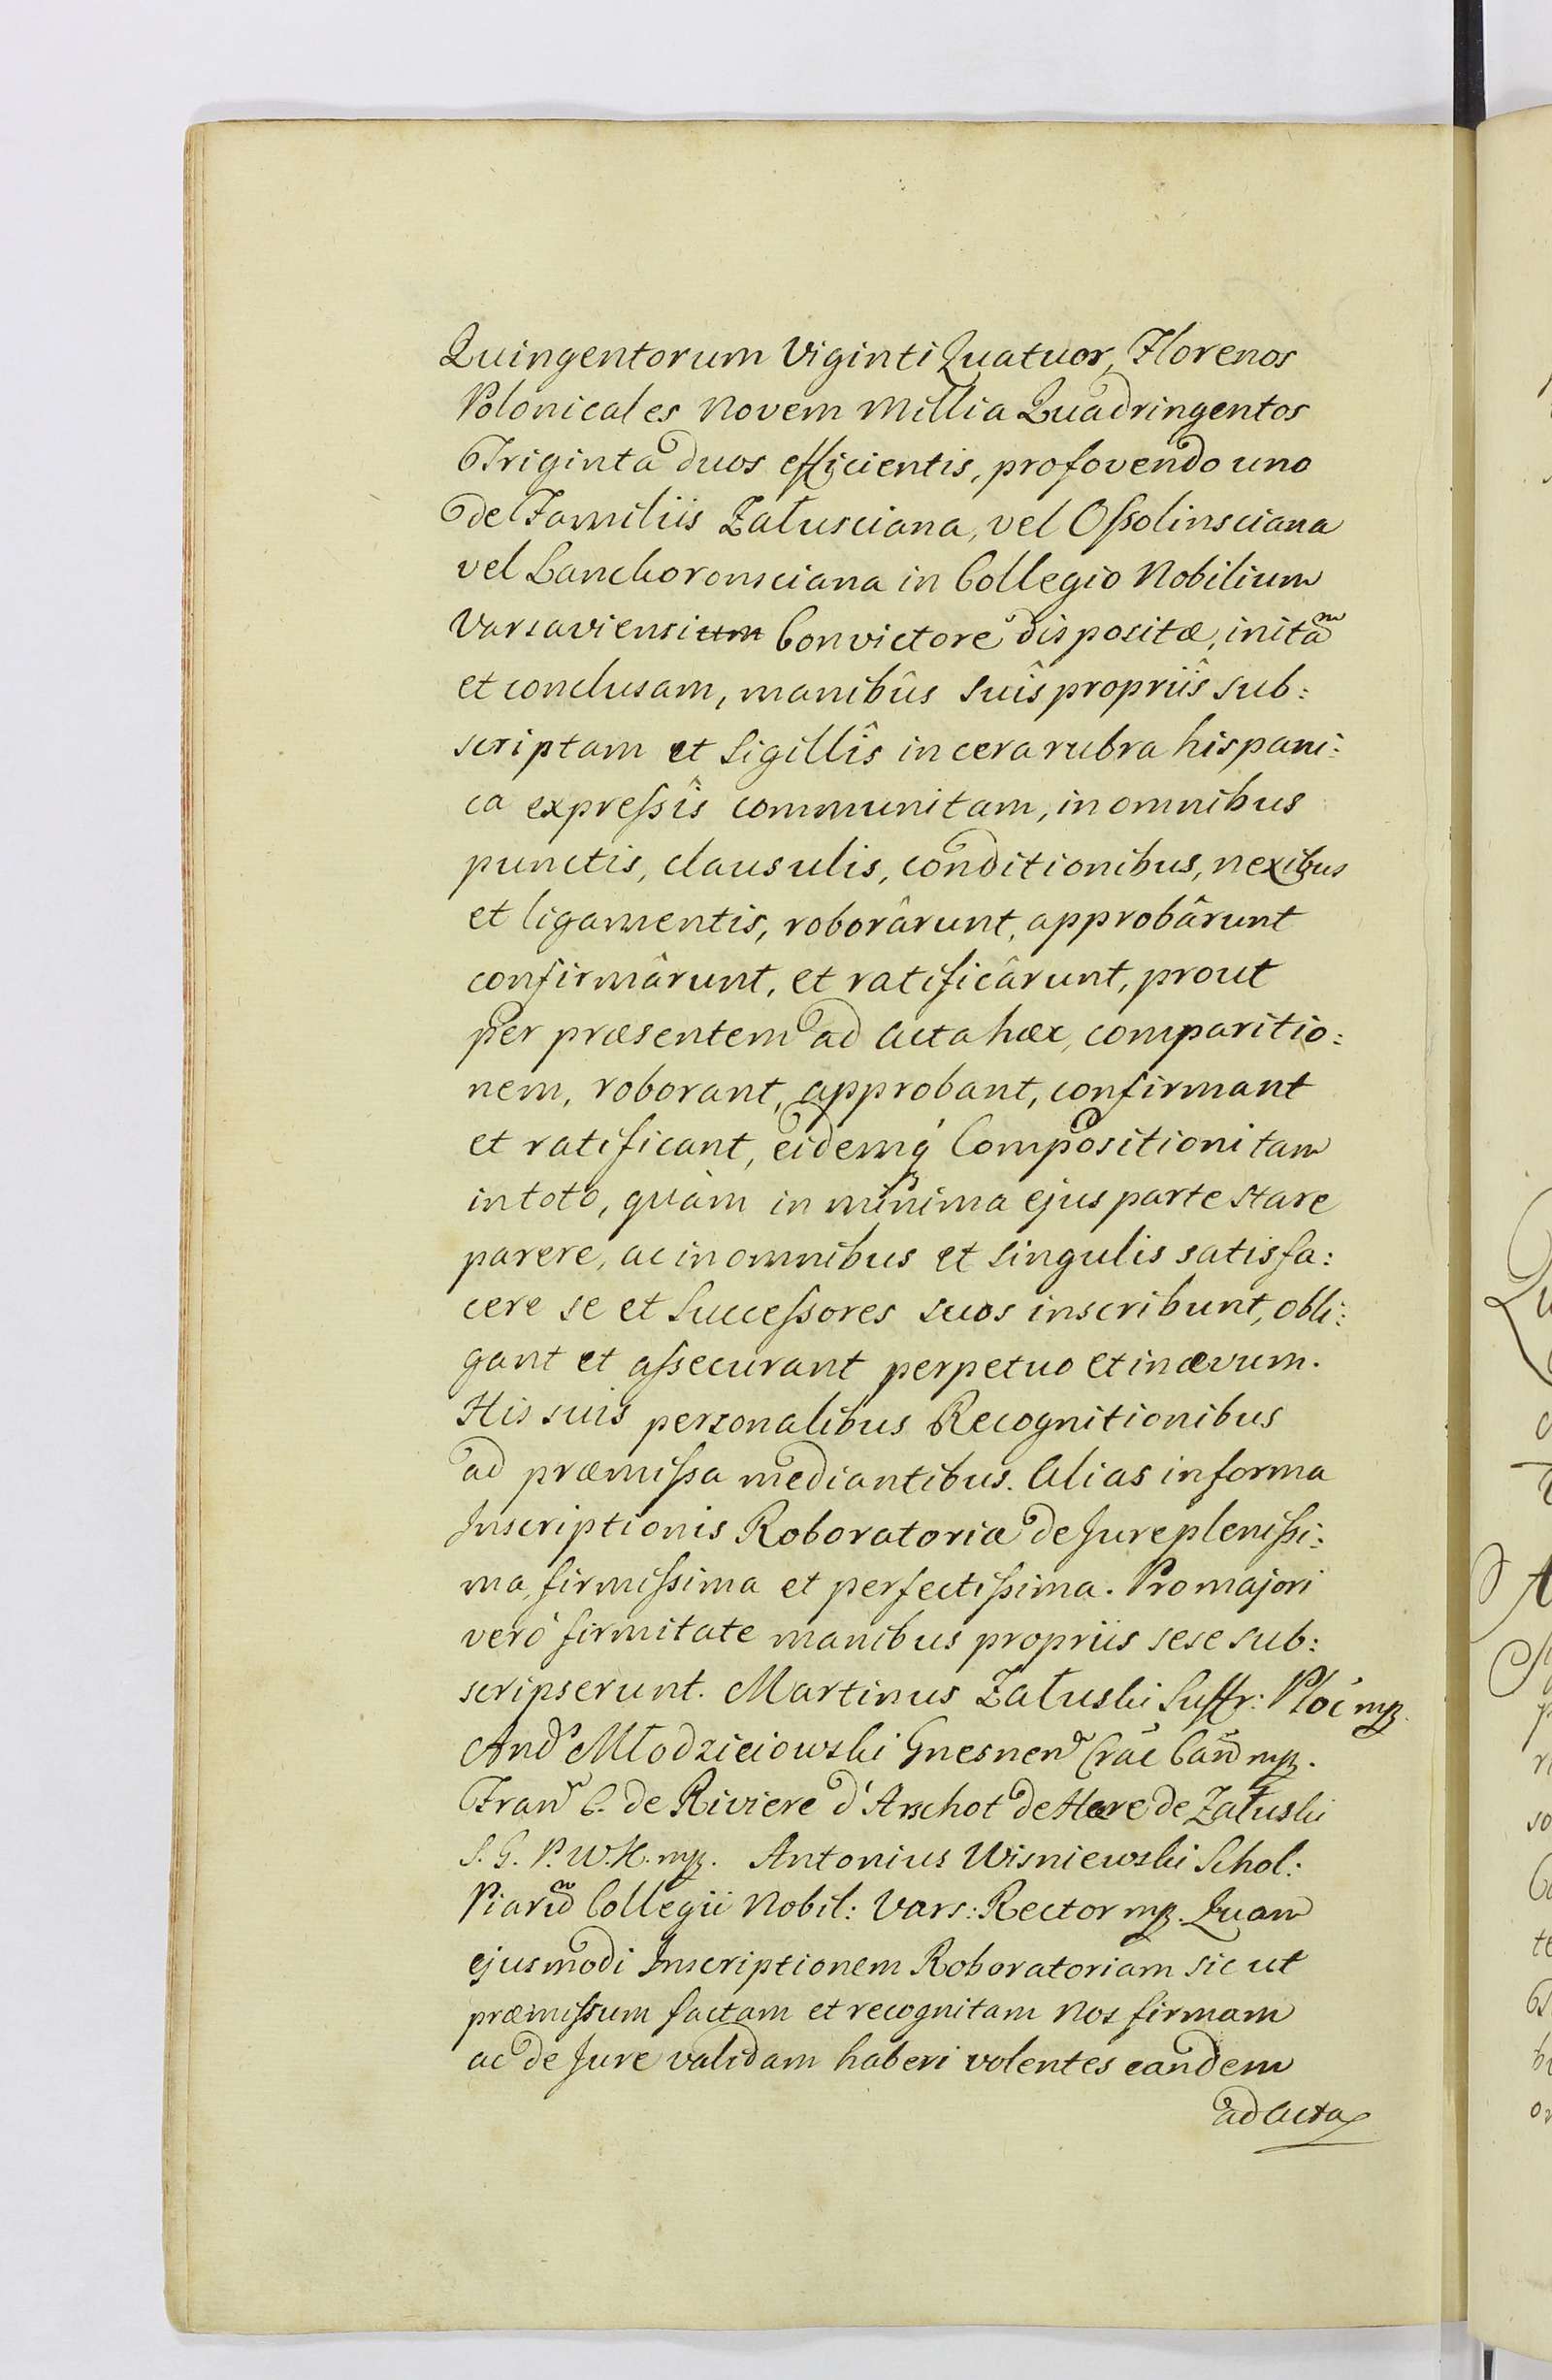 Quingentorum Viginti Quatuor, Florenos
Polonicales Novem Millia Quadringentos
Triginta duos efficientis, pro fovendo uno
de Familiis Załusciana, vel Oſsolinsciana
vel Lanckoronsciana in Collegio Nobilium
Varsaviensium Convictore dispositæ, initam
et conclusam, manibûs suîs propriîs sub:
scriptam et Sigillîs in cera rubra hispani:
ca expreſsîs communitam, in omnibus
punctis, clausulis, conditionibus, nexibus
et ligamentis, roborârunt, approbârunt
confirmârunt, et ratificârunt, prout
per præsentem ad Acta hæc, comparitio:
nem, roborant, approbant, confirmant
et ratificant, eidemq́ Compositioni tam
in toto, quàm in minima ejus parte stare
parere, ac in omnibus et singulis satisfa:
cere se et Succeſsores suos inscribunt, obli:
gant et aſsecurant perpetuo et in ævum.
His suis personalibus Recognitionibus
ad præmiſsa mediantibus. Alias in forma
Inscriptionis Roboratoriæ de Jure pleniſsi:
ma, firmiſsima et perfectiſsima. Pro majori
verò firmitate manibus propriis sese sub:
scripserunt. Martinus Załuski Suffr: Ploć mp.
And Młodzieiowski Gnesnen Crac Can mp.
Fran C. de Riviere d'Arschot de Here de Załuski
S. G. P. W. K. mp. Antonius Wisniewski Schol:
Piarum Collegii Nobil: Vars: Rector mp. Quam
ejusmodi Inscriptionem Roboratoriam sic ut
præmiſsum factam et recognitam Nos firmam
ac de Jure validam haberi volentes eandem
ad Acta